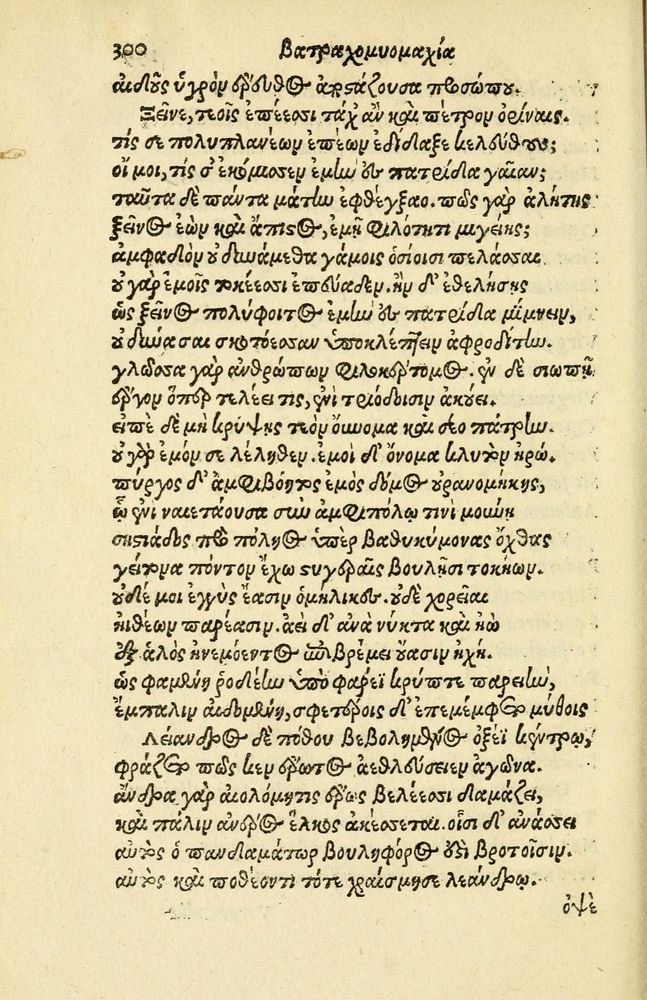 300 Βατραχομυομαχία
αἰδοῦς ὑγρὸν ἔρευθος ἀποστάζουσα προσώπου.
Ξεῖνε, τεοῖς ἐπέεσσι τάχ' ἂν καὶ πέτρον ὀρίναις.
τίς σε πολυπλανέων ἐπέων ἐδίδαξε κελεύθους;
οἴ μοι, τίς σ' ἐκόμισσεν ἐμὴν ἐς πατρίδα γαῖαν;
ταῦτα δὲ πάντα μάτην ἐφθέγξαο. πῶς γὰρ ἀλήτης
ξεῖνος ἐὼν καὶ ἄπιστος, ἐμῇ φιλότητι μιγείης;
ἀμφαδὸν οὐ δυνάμεθα γάμοις ὁσίοισι πελάσσαι
οὐ γὰρ ἐμοῖς τοκέεσσι ἐπεύαδεν. ἢν δ' ἐθελήσῃς
ὡς ξεῖνος πολύφοιτος ἐμὴν ἐς πατρίδα μίμνειν,
οὐ δύνασαι σκοτόεσσαν ὑποκλέπτειν ἀφροδίτην.
γλῶσσα γὰρ ἀνθρώπων φιλοκέρτομος. ἐν δὲ σιωπῇ
ἔργον ὅπερ τελέει τις, ἐνὶ τριόδοισιν ἀκούει.
εἰπὲ δὲ μὴ κρύψῃς τεὸν οὔνομα καὶ σέο πάτρην.
οὐ γὰρ ἐμόν σε λέληθεν. ἐμοὶ δ' ὄνομα κλυτὸν ἡρώ.
πύργος δ' ἀμφιβόητος ἐμὸς δόμος οὐρανομήκης,
ᾧ ἐνὶ ναιετάουσα σὺν ἀμφιπόλῳ τινὶ μούνῃ
σηστιάδος πρὸ πόληος ὑπὲρ βαθυκύμονας ὄχθας
γείτονα πόντον ἔχω στυγεραῖς βουλῇσι τοκήων.
οὐδέ μοι ἐγγὺς ἔασιν ὁμήλικες. οὐδὲ χορεῖαι
ἠιθέων παρέασιν. ἀεὶ δ' ἀνὰ νύκτα καὶ ἠῶ
ἐξ ἁλὸς ἠνεμόεντος ἐπιβρέμει οὔασιν ἠχή.
ὣς φαμένη ῥοδέην ὑπὸ φάρεϊ κρύπτε παρειὴν,
ἔμπαλιν αἰδομένη, σφετέροις δ' ἐπεμέμφετο μύθοις
Λέιανδρος δὲ πόθου βεβολημένος ὀξέϊ κέντρῳ,
φράζετο πῶς κεν ἔρωτος ἀεθλεύσειεν ἀγῶνα.
ἄνδρα γὰρ αἰολόμητις ἔρως βελέεσσι δαμάζει,
καὶ πάλιν ἀνέρος ἕλκος ἀκέσσεται. οἷσι δ' ἀνάσσει
αὐτὸς ὁ πανδαμάτωρ βουληφόρος ἐστὶ βροτοῖσιν.
αὐτὸς καὶ ποθέοντι τότε χραίσμησε λεάνδρῳ.
ὀψὲ